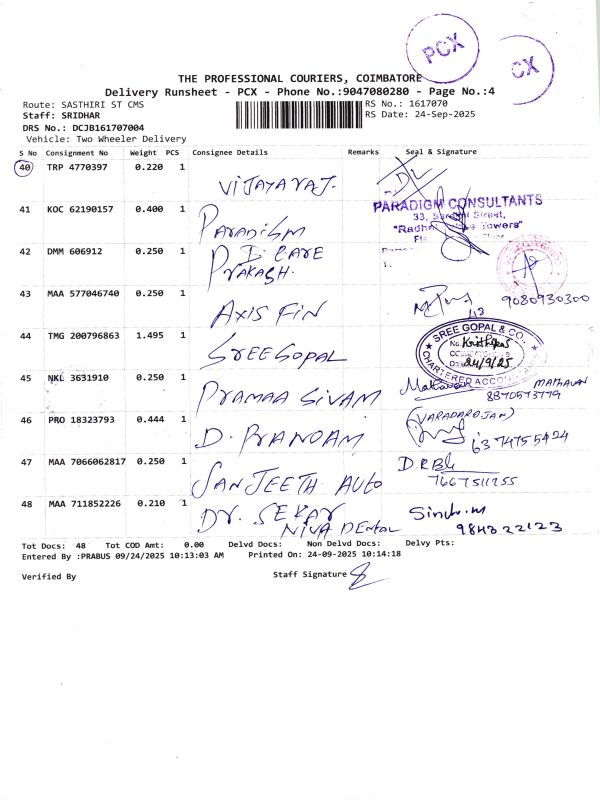 PCX
CX
THE PROFESSIONAL COURIERS, COIMBATORE
Delivery Runsheet - PCX - Phone No.:9047080280 - Page No.:4
Route: SASTHIRI ST CMS
RS No.: 1617070
Staff: SRIDHAR
RS Date: 24-Sep-2025
DRS No.: DCJB161707004
Vehicle: Two Wheeler Delivery
S No Consignment No Weight PCS Consignee Details Remarks Seal & Signature
40 TRP 4770397 0.220 1 VIJAYARAJ.
41 KOC 62190157 0.400 1 PARADIGM
PARADIGM CONSULTANTS
"Radha Towers"
42 DMM 606912 0.250 1 D. CARE
PRAKASH.
43 MAA 577046740 0.250 1 AXIS FIN
9080930300
44 TMG 200796863 1.495 1 SREE GOPAL
SREE GOPAL & CO.
No.
24/9/25
CHARTERED ACCOUNTANTS
45 NKL 3631910 0.250 1 PRAMAA SIVAM
MATHAVAN
8870573779
46 PRO 18323793 0.444 1 D. PRANOAM
(VARADARAJAN)
6374755424
47 MAA 7066062817 0.250 1 SANJEETH AUTO
7667511255
48 MAA 711852226 0.210 1 DR. SEKAR
NIVA DENTAL
984322123
Tot Docs: 48 Tot COD Amt: 0.00 Delvd Docs: Non Delvd Docs: Delvy Pts:
Entered By :PRABUS 09/24/2025 10:13:03 AM Printed On: 24-09-2025 10:14:18
Verified By
Staff Signature